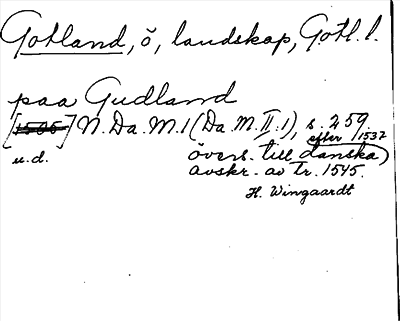 Gotland, ö, landskap, Gotl. l.
paa Gudland
[1505] N. Da. M. 1 (Da. M. II. 1), s. 259
efter 1532
u.d. övers. till danska)
avskr. av tr. 1545.
H. Wingaardt